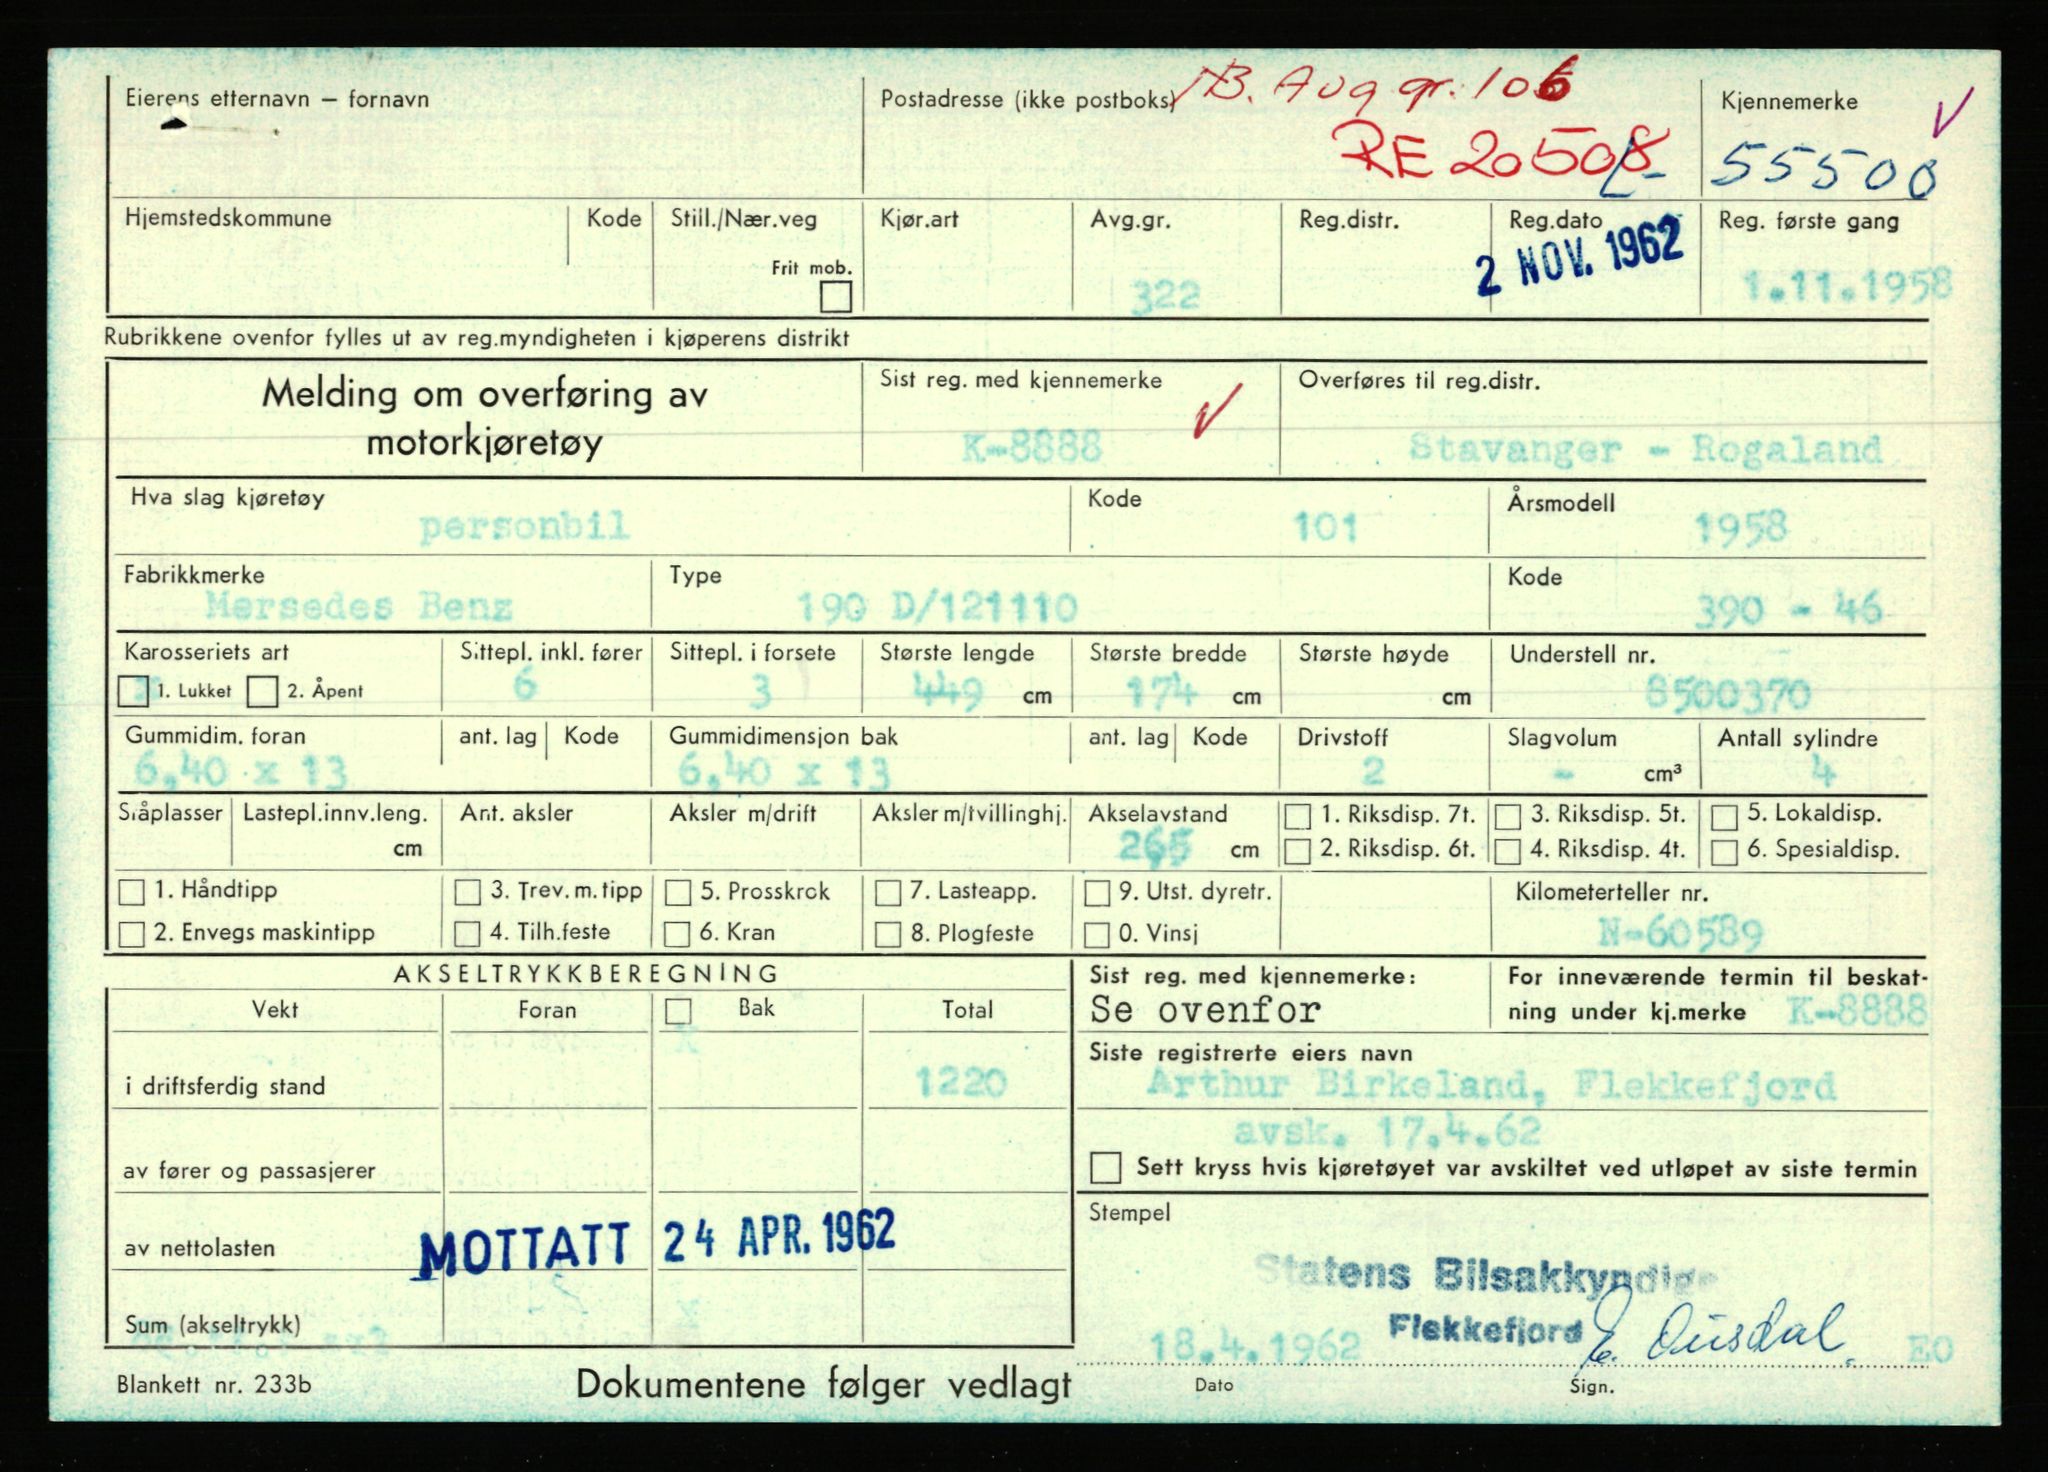 NB. Avg gr. 106
Eierens etternavn – fornavn
Postadresse (ikke postboks)
Kjennemerke
RE 20508
L- 55500
Hjemstedskommune
Kode
Still./Nær.veg
Frit mob.
Kjør.art
Avg.gr.
322
Reg.distr.
Reg.dato
2 NOV. 1962
Reg. første gang
1.11.1958
Rubrikkene ovenfor fylles ut av reg.myndigheten i kjøperens distrikt
Melding om overføring av
motorkjøretøy
Sist reg. med kjennemerke
K-8888
Overføres til reg.distr.
Stavanger - Rogaland
Hva slag kjøretøy
personbil
Kode
101
Årsmodell
1958
Fabrikkmerke
Mersedes Benz
Type
190 D/121110
Kode
390 - 46
Karosseriets art
1. Lukket
2. Åpent
Sittepl. inkl. fører
6
Sittepl. i forsete
3
Største lengde
449 cm
Største bredde
174 cm
Største høyde
cm
Understell nr.
8500370
Gummidim. foran
6,40 x 13
ant. lag
Kode
Gummidimensjon bak
6,40 x 13
ant. lag
Kode
Drivstoff
2
Slagvolum
- cm³
Antall sylindre
4
Ståplasser
Lastepl.innv.leng.
cm
Ant. aksler
Aksler m/drift
Aksler m/tvillinghj.
Akselavstand
265 cm
1. Riksdisp. 7t.
2. Riksdisp. 6t.
3. Riksdisp. 5t.
4. Riksdisp. 4t.
5. Lokaldisp.
6. Spesialdisp.
1. Håndtipp
2. Envegs maskintipp
3. Trev. m. tipp
4. Tilh.feste
5. Prosskrok
6. Kran
7. Lasteapp.
8. Plogfeste
9. Utst. dyretr.
0. Vinsj
Kilometerteller nr.
N-60589
AKSELTRYKKBEREGNING
Vekt
Foran
Bak
Total
X
i driftsferdig stand
1220
av fører og passasjerer
av nettolasten
MOTTATT 24 APR. 1962
Sum (akseltrykk)
Sist reg. med kjennemerke:
Se ovenfor
For inneværende termin til beskat-
ning under kj.merke K-8888
Siste registrerte eiers navn
Arthur Birkeland, Flekkefjord
avsk. 17.4.62
Sett kryss hvis kjøretøyet var avskiltet ved utløpet av siste termin
Stempel
Statens Bilsakkyndige
Flekkefjord
18.4.1962
E. Ousdal
EO
Dato
Sign.
Blankett nr. 233b
Dokumentene følger vedlagt